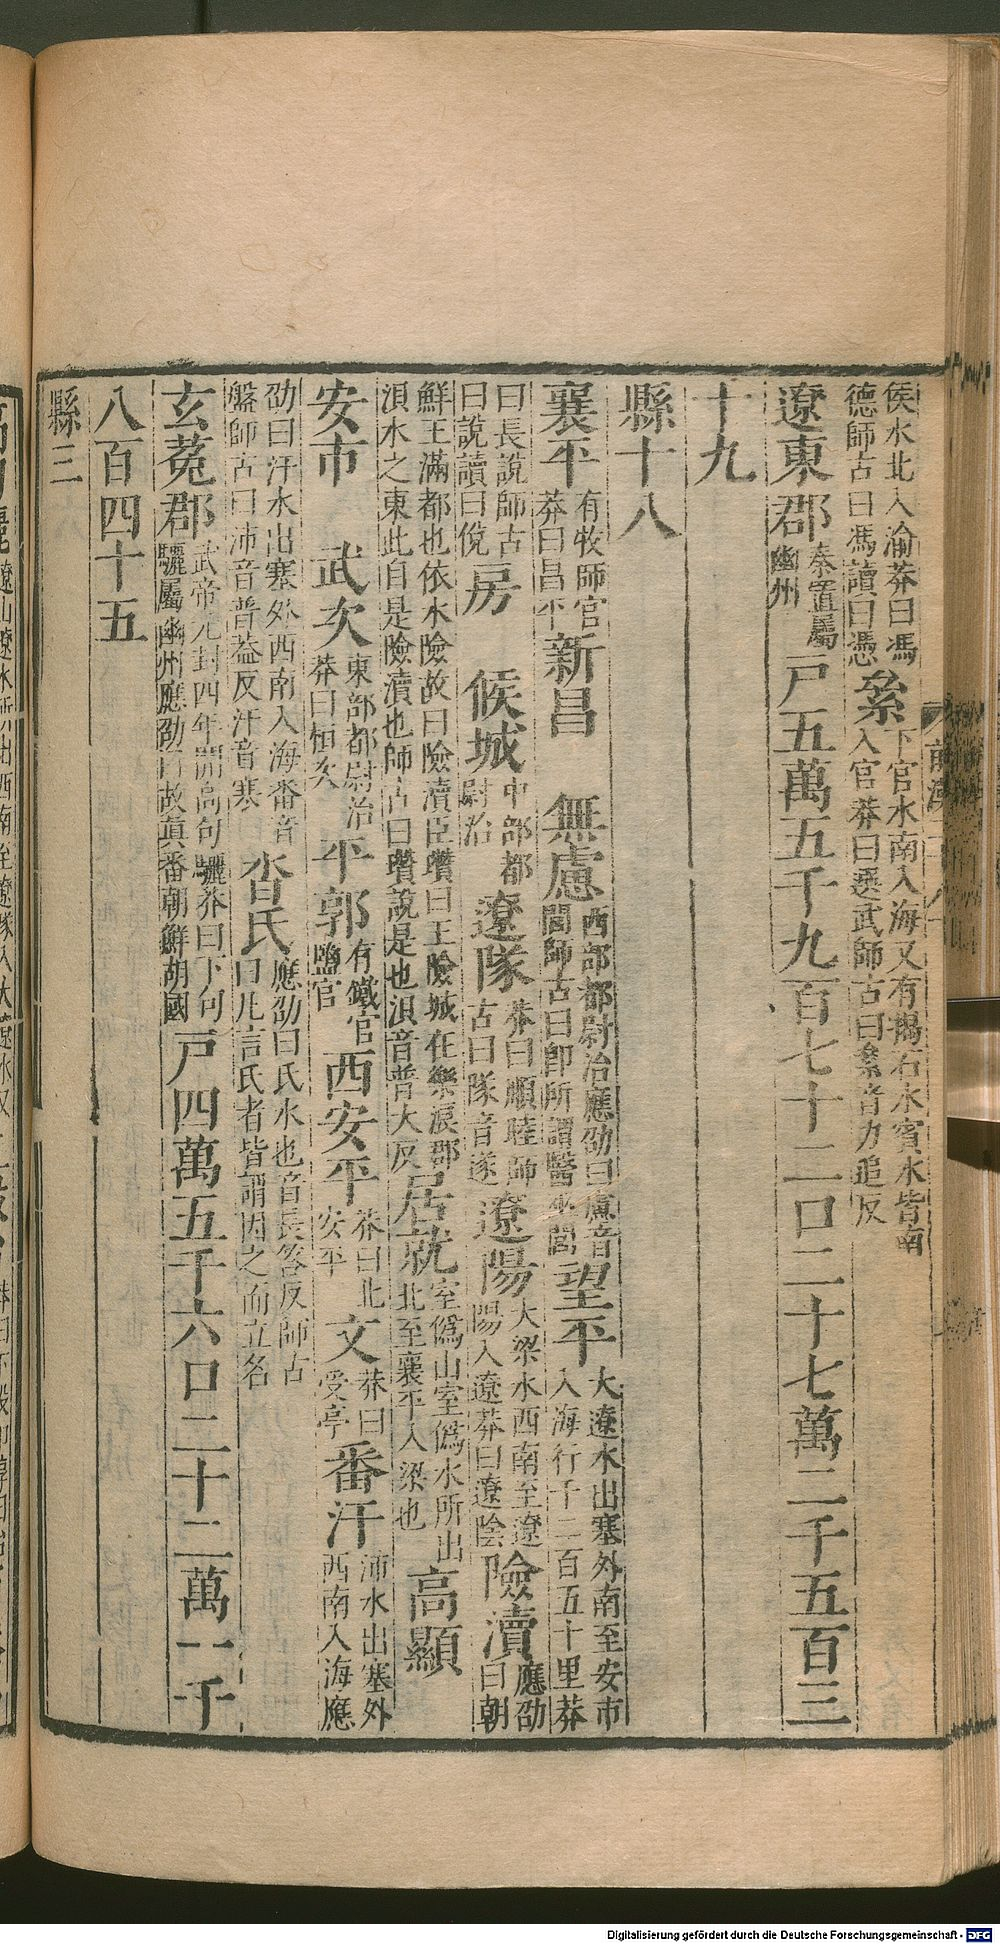 侯水北入渝莽曰馮
德師古曰馮讀曰憑絫下官水南入海又有揭石水賓水皆南
入官莽曰選武師古曰絫音力追反
遼東郡秦置屬
幽州戶五萬五千九百七十二口二十七萬二千五百三
十九
縣十八
襄平有牧師官
莽曰昌平新昌 無慮西部都尉治應劭曰慮音
閭師古曰卽所謂醫巫閭望平大遼水出塞外南至安市
入海行千二百五十里莽
曰長說師古
曰說讀曰悅房 候城中部都
尉治遼隊莽曰順睦師
古曰隊音遂遼陽大梁水西南至遼
陽入遼莽曰遼陰險瀆應劭
曰朝
鮮王滿都也依水險故曰險瀆臣瓚曰王險城在樂浪郡
浿水之東此自是險瀆也師古曰瓚說是也浿音普大反居就室僞山室僞水所出
北至襄平入梁也高顯
安市 武次東部都尉治
莽曰桓次平郭有鐵官
鹽官西安平莽曰北
安平文莽曰
受亭番汗沛水出塞外
西南入海應
劭曰汗水出塞外西南入海番音
盤師古曰沛音普葢反汗音寒沓氏應劭曰氏水也音長答反師古
曰凡言氏者皆謂因之而立名
玄菟郡武帝元封四年開高句驪莽曰下句
驪屬幽州應劭曰故眞番朝鮮胡國戶四萬五千六口二十二萬一千
八百四十五
縣三
Digitalisierung gefördert durch die Deutsche Forschungsgemeinschaft - DFG